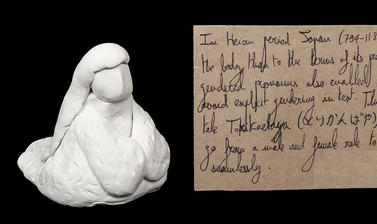 In Heian period Japan (794-118
the body than to the terms of its pe
gendered pronouns also enabled
avoid explicit gendering in text. Th
tale Torikaebaya (とりかへばや)
go from a male and female role to
seamlessly.